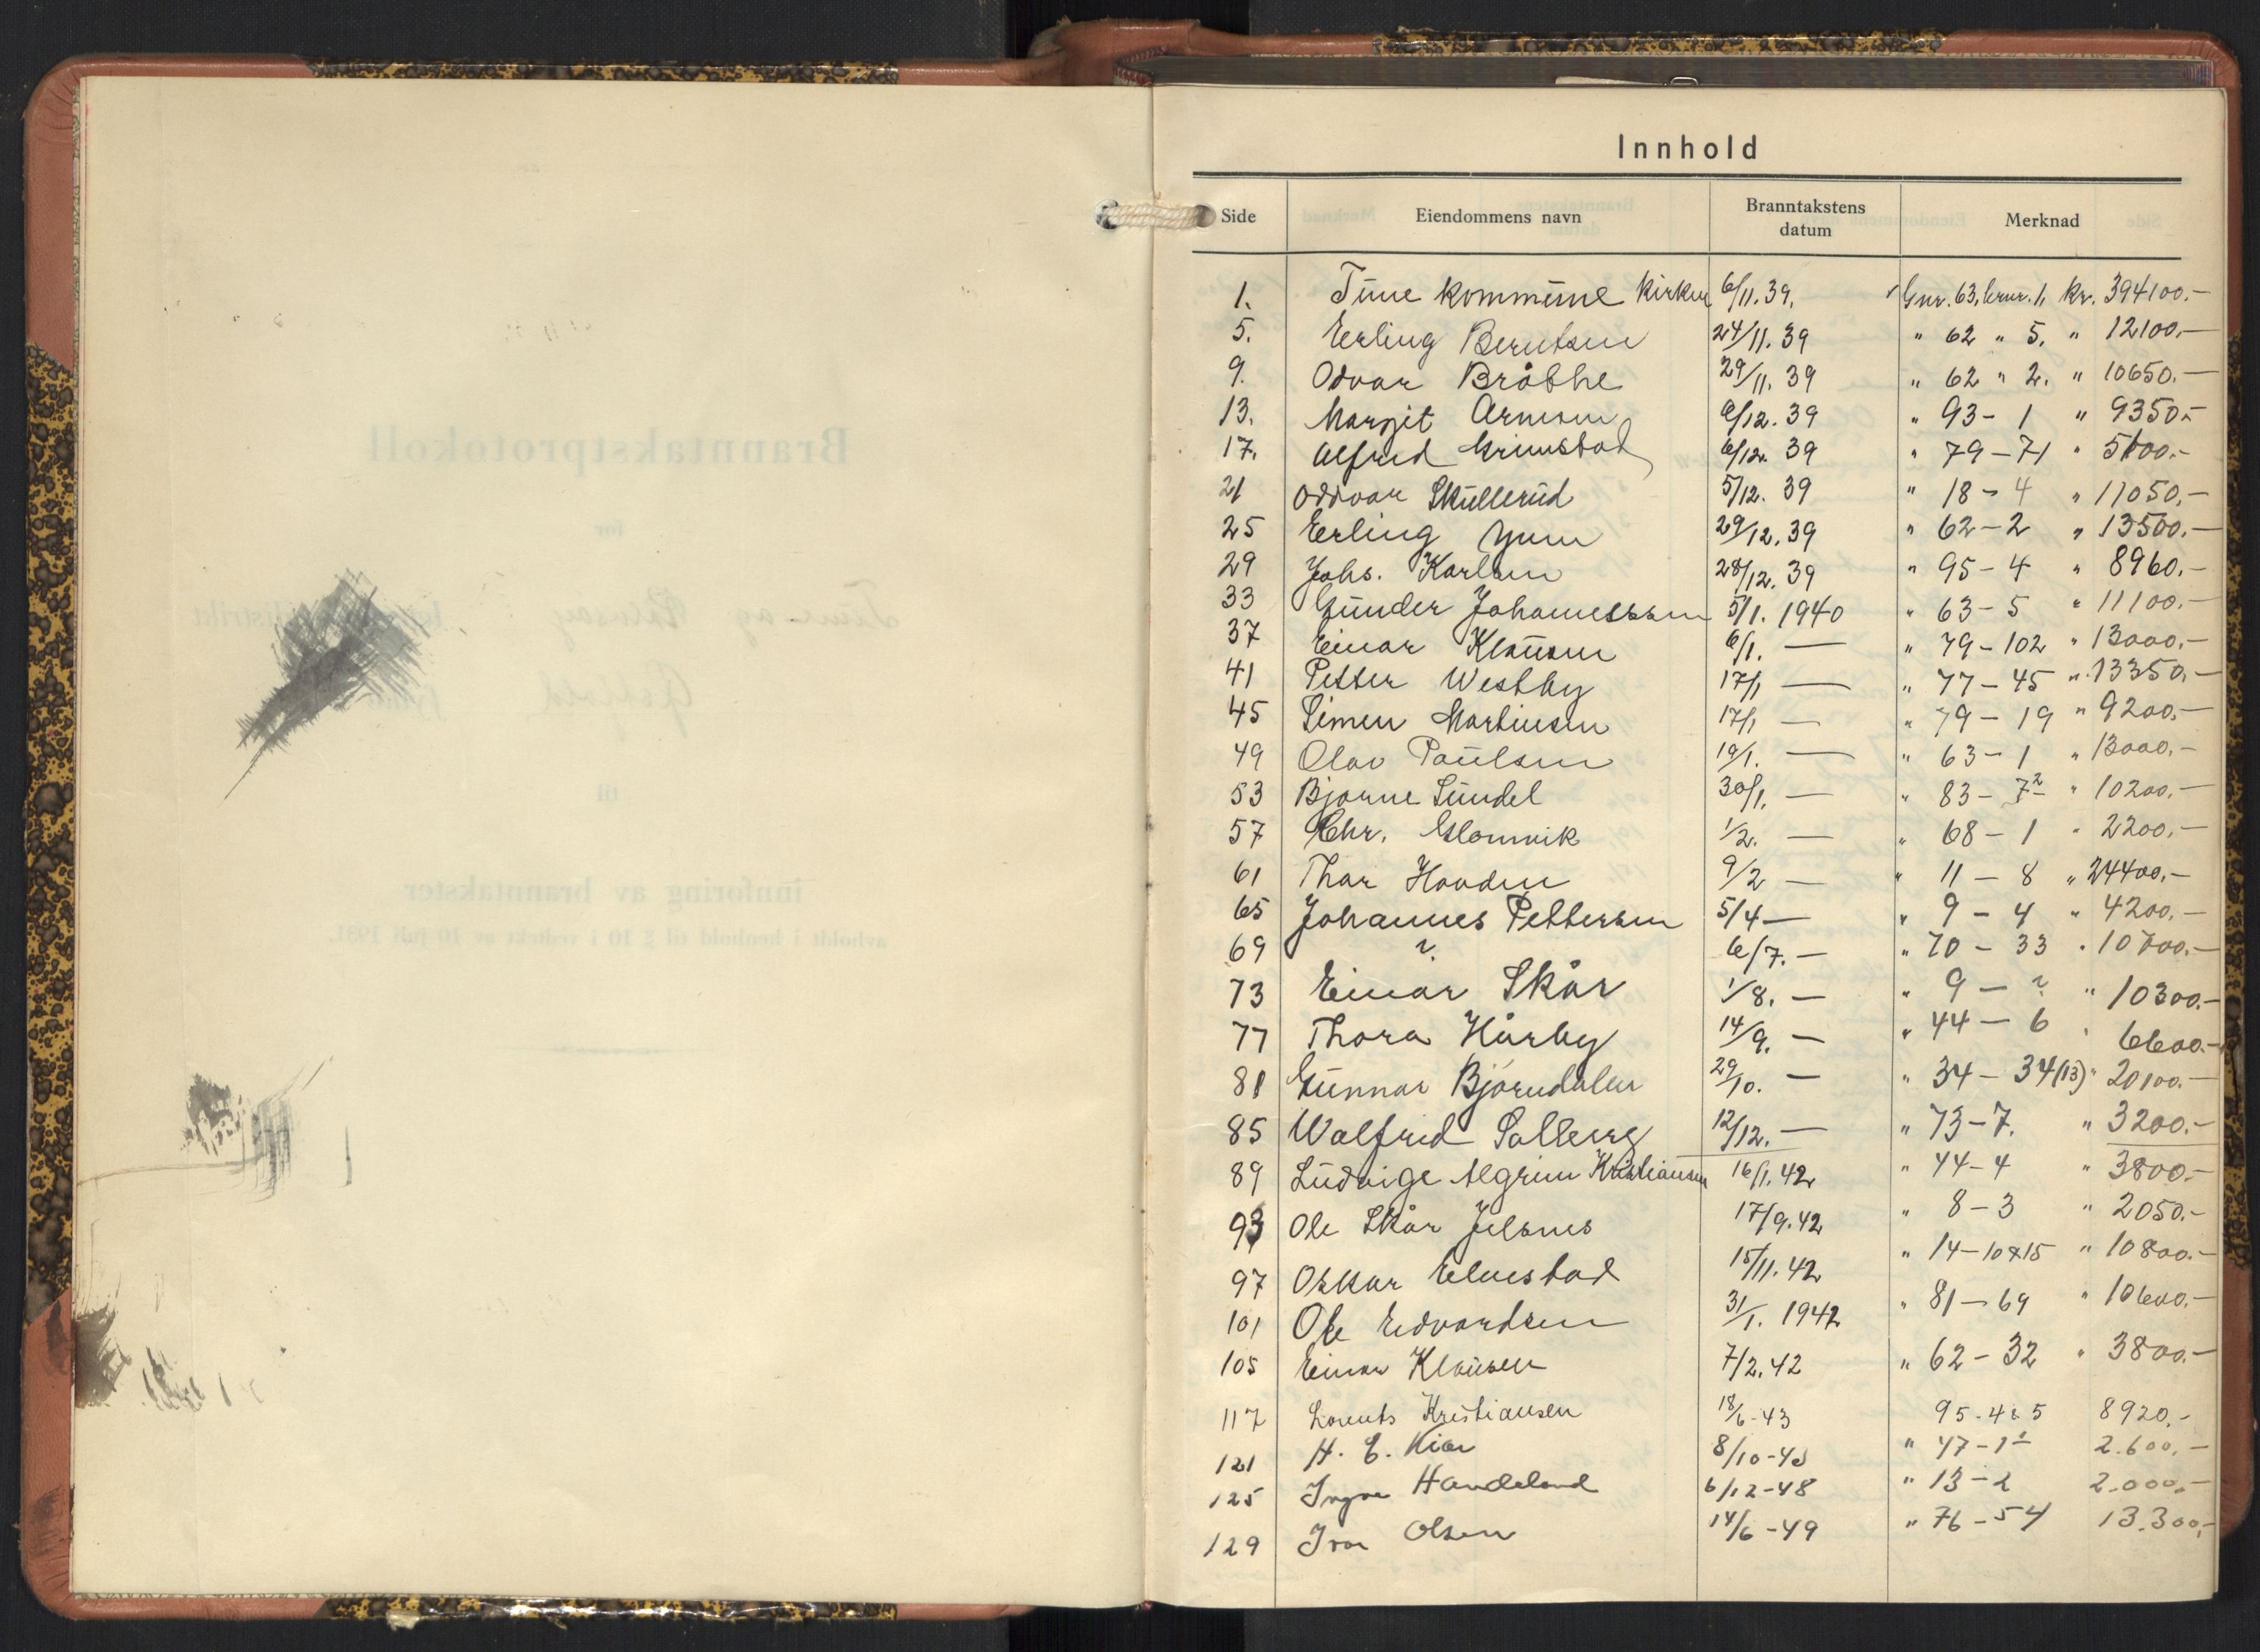 Innhold
Side Eiendommens navn Branntakstens datum Merknad
1. Tune kommune kirken 6/11.39. Gnr. 63, brnr. 1, kr. 394100.-
5. Erling Berntsen 24/11.39 " 62 " 5. " 12100.-
9. Odvar Bråthe 29/11.39 " 62 " 2. " 10650.-
13. Margit Arnesen 6/12.39 " 93-1 " 9350.-
17. Alfred Grimstad 6/12.39 " 79-71 "
21 Oddvar Skullerud 5/12.39 " 18-4 " 11050.-
25 Erling 29/12.39 " 62-2 " 13500.-
29 Johs. Karlsen 28/12.39 " 95-4 " 8960.-
33 Gunder Johannessen 5/1.1940 " 63-5 " 11100.-
37 Einar Klausen 6/1. — " 79-102 " 13000.-
41 Petter Westby 17/1 — " 77-45 " 13350.-
45 Simen Martinsen 17/1 — " 79-19 " 9200.-
49 Olav Paulsen 19/1. — " 63-1 " 13000.-
53 Bjarne Sundel 30/1. — " 83-7² " 10200.-
57 Chr. Glomvik 1/2. — " 68-1 " 2200.-
61 Thor Hauden 9/2 — " 11-8 " 24400.-
65 Johannes Pettersen 5/4 — " 9-4 " 4200.-
69 ? 6/7. — " 70-33 "
73 Einar Skår 1/8. — " 9-? " 10300.-
77 Thora Hårby 14/9. — " 44-6 " 6600.-
81 Gunnar Bjørndalen 29/10. — " 34-34(13) " 20100.-
85 Walfred Solberg 12/12. — " 73-7. " 3200.-
89 Ludvige Algrim Kristiansen 16/1.42 " 44-4 " 3800.-
93 Ole Skår Jelsnes 17/9.42 " 8-3 " 2050.-
97 Oskar Elvestad 15/11.42 " 14-10&15 " 10800.-
101 Ole Edvardsen 31/1.1942 " 81-69 " 10600.-
105 Einar Klausen 7/2.42 " 62-32 " 3800.-
117 Lorents Kristiansen 18/6-43 95-4&5 8920.-
121 H. C. Kiær 8/10- " 47-1 2.600.-
125 Ingvar Handeland 6/12-48 " 13-2 2.000.-
129 Ivar Olsen 14/6-49 " 76-54 13.300.-